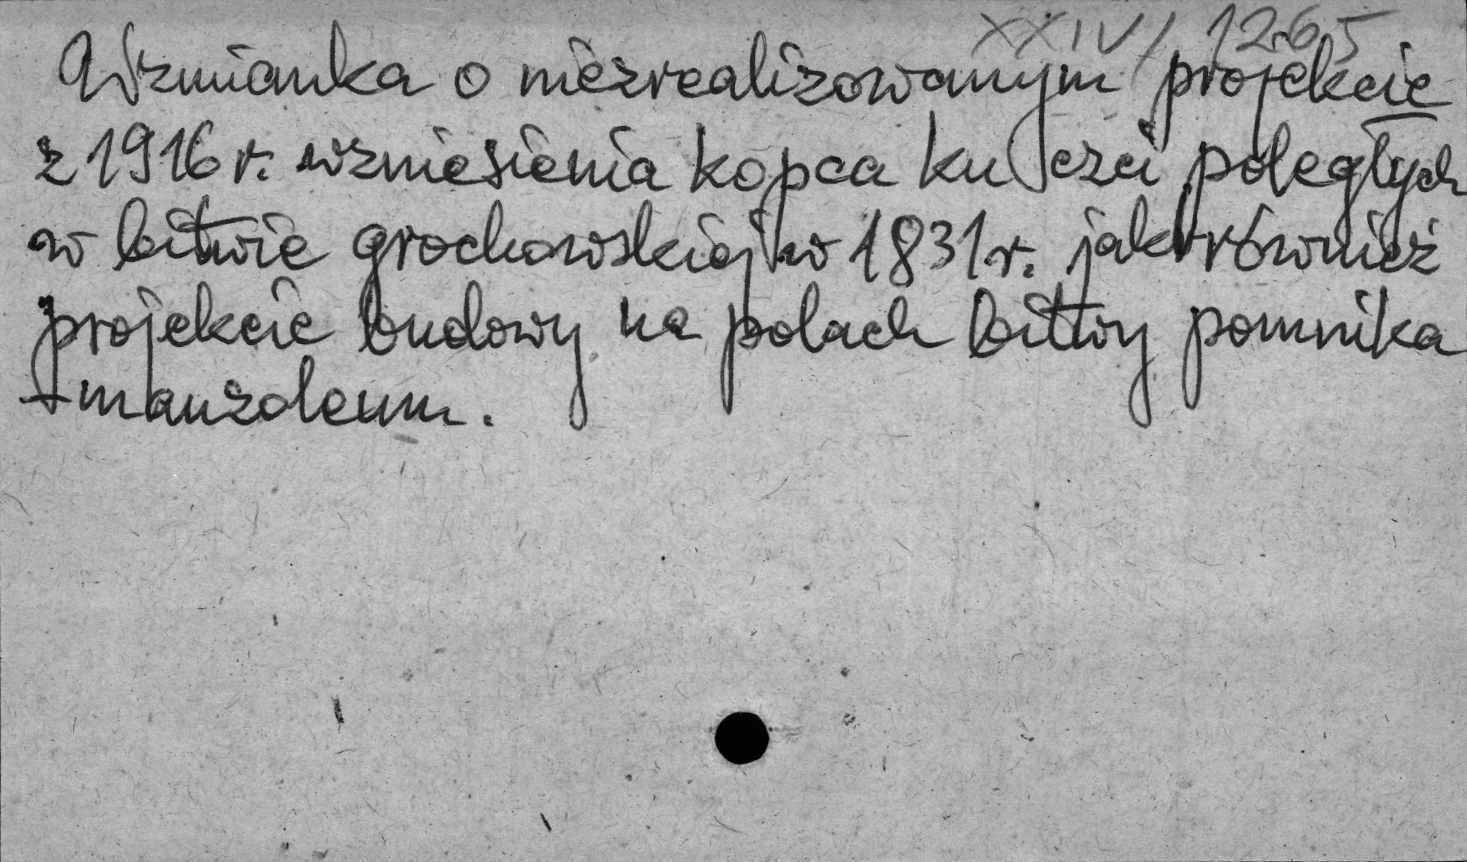 XXIV/1265
Wzmianka o niezrealizowanym projekcie
z 1916 r. wzniesienia kopca ku czci poległych
w bitwie grochowskiej w 1831 r. jak również
projekcie budowy na polach bitwy pomnika
- mauzoleum.